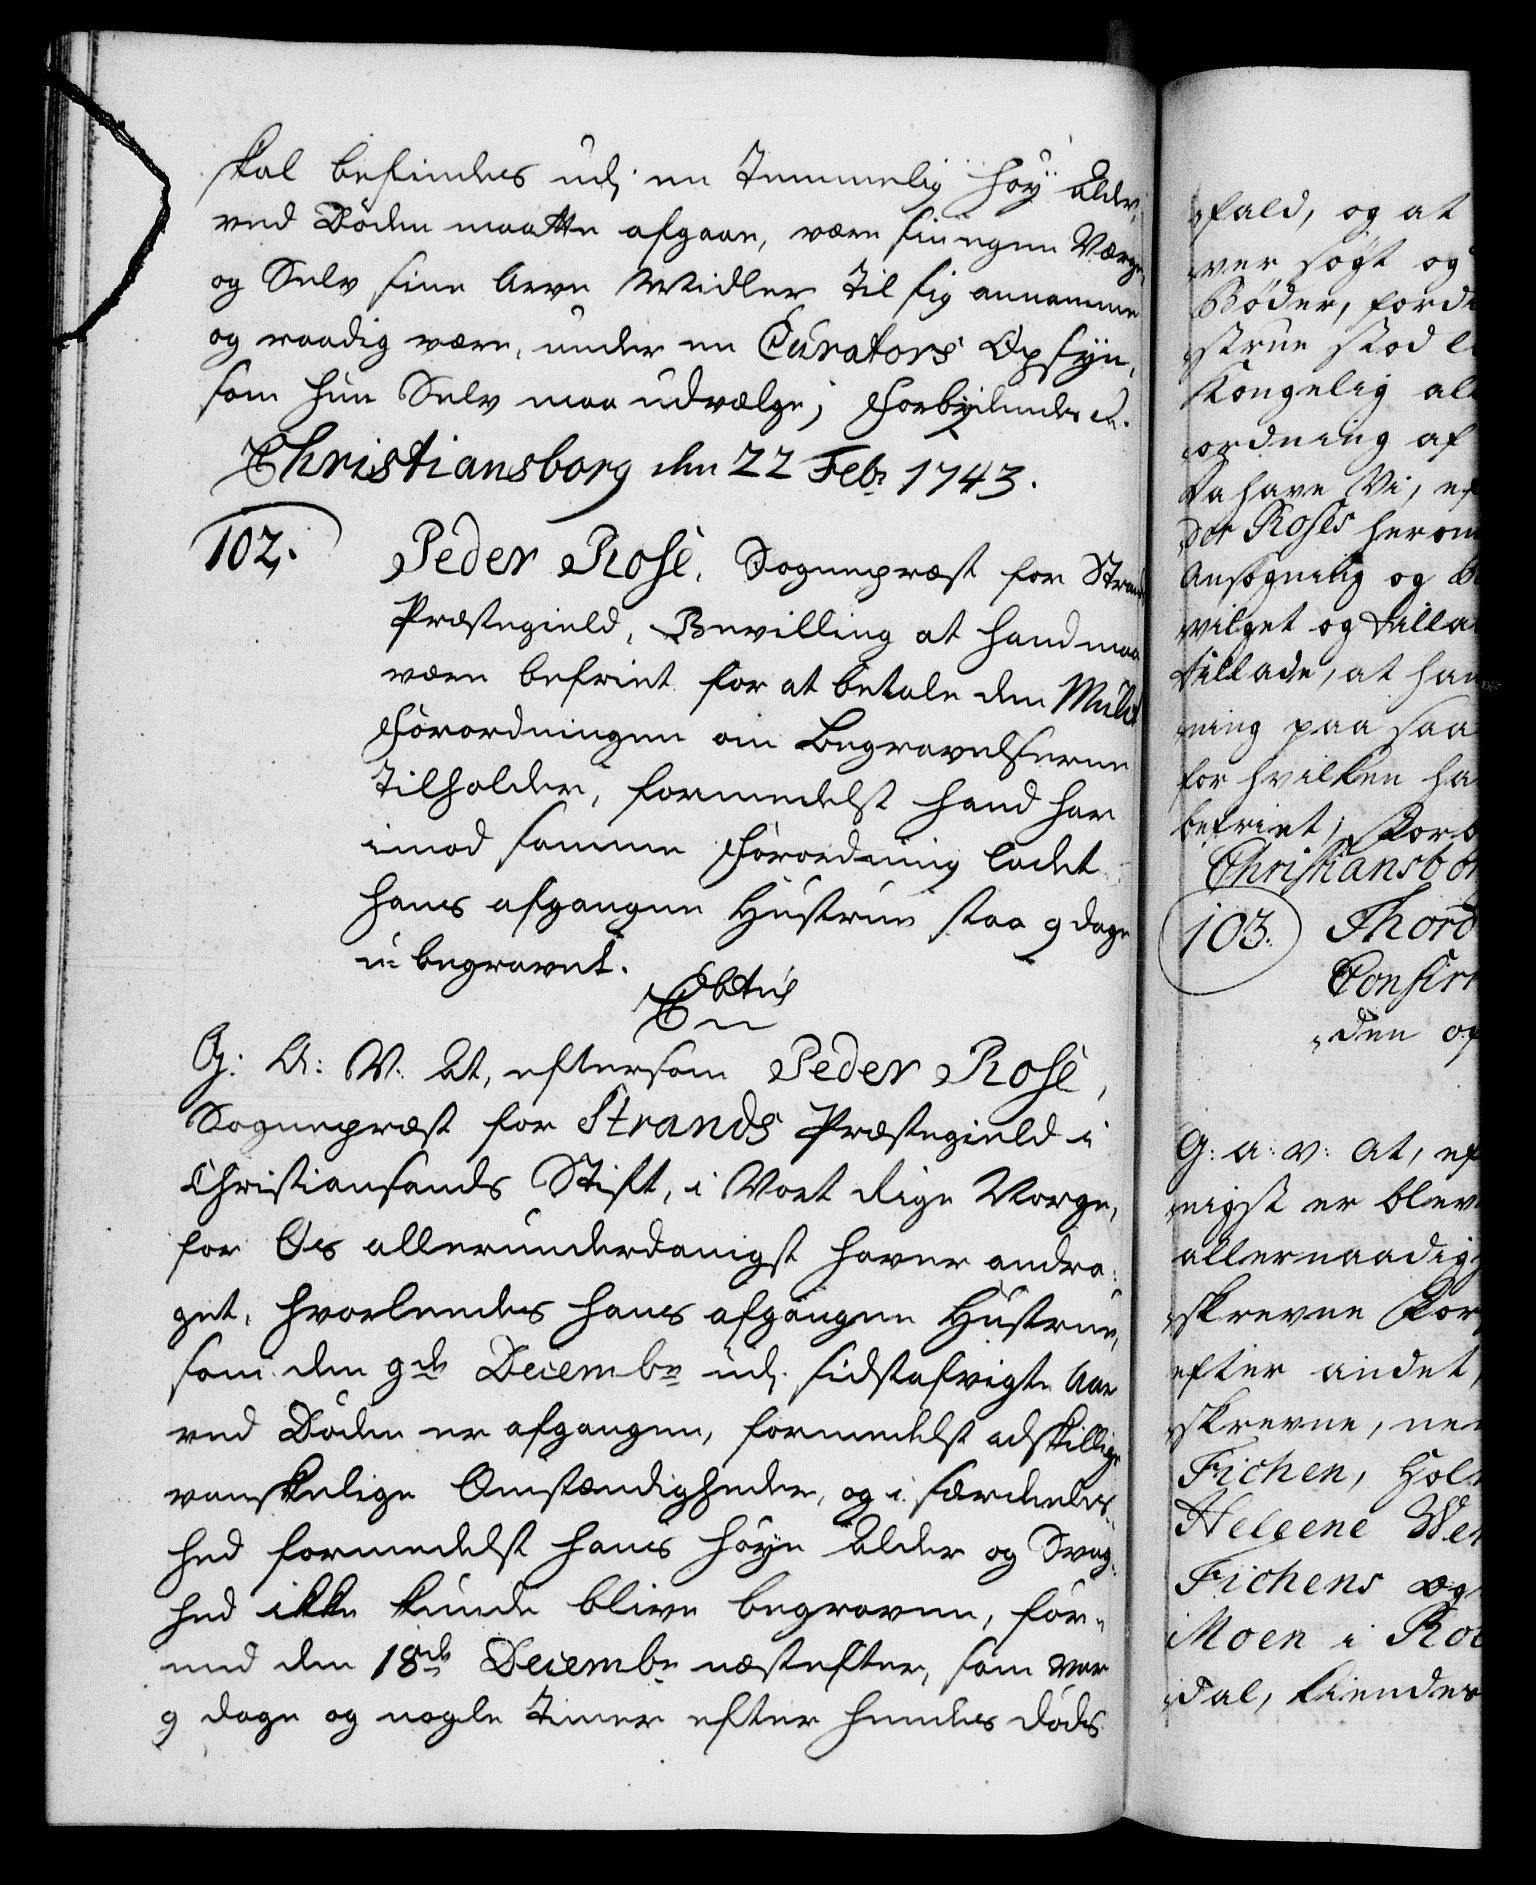 skal befindes udj en Temmelig høy Alder,
ved Døden maatte afgaae, være sin egen Værge,
og Selv sine Arve Midler til sig annamme
og raadig være, under en Curators Opsyn,
som hun Selv maa udvælge; Forbydendes etc.
Christiansborg den 22 Febr 1743.
102. Peder Rose, Sognepræst for Strands
Præstegield, Bevilling at hand maa
være befriet for at betale den Mulct
Forordningen om Begravelserne
Tilholder, formedelst hand har
imod samme Forordning ladet
hans afgangne Hustrue staa 9 dage
u-begravet.
G: A: V: At, eftersom Peder Rose,
Sognepræst for Strands Præstegield i
Christiansands Stift, i Vort Rige Norge,
for Os allerunderdanigst haver andra-
get, hvorledes hans afgangne Hustrue,
som den 9de Decembr udj sidstafvigte Aar
ved Døden er afgangen, formedelst adskillige
vanskelige Omstændigheder, og i særdeeles-
hed formedelst hans høye Alder og Svag-
hed ikke kunde blive begraven, for-
end den 18de Decembr næstefter, som var
9 dage og nogle Timer efter hendes Døds
fald, og at
ver søgt og
Bøder, fordi
strue stod
Kongelig al
ordning af
Da have Vi, ef
der Roses herom
Ansøgning og
vilget og tilla
tillade, at han
ning paa saa
for hvilken ha
befriet; Forb
Christiansbor
103. Thord
Confirm
den op
G: A: V: At, ef
nigst er blev
allernaadigs
skrevne For
efter andet,
skrevne, nem
Fichen, Hol
Heleene We
Fichens og
Moen i Ro
dal, kiendes